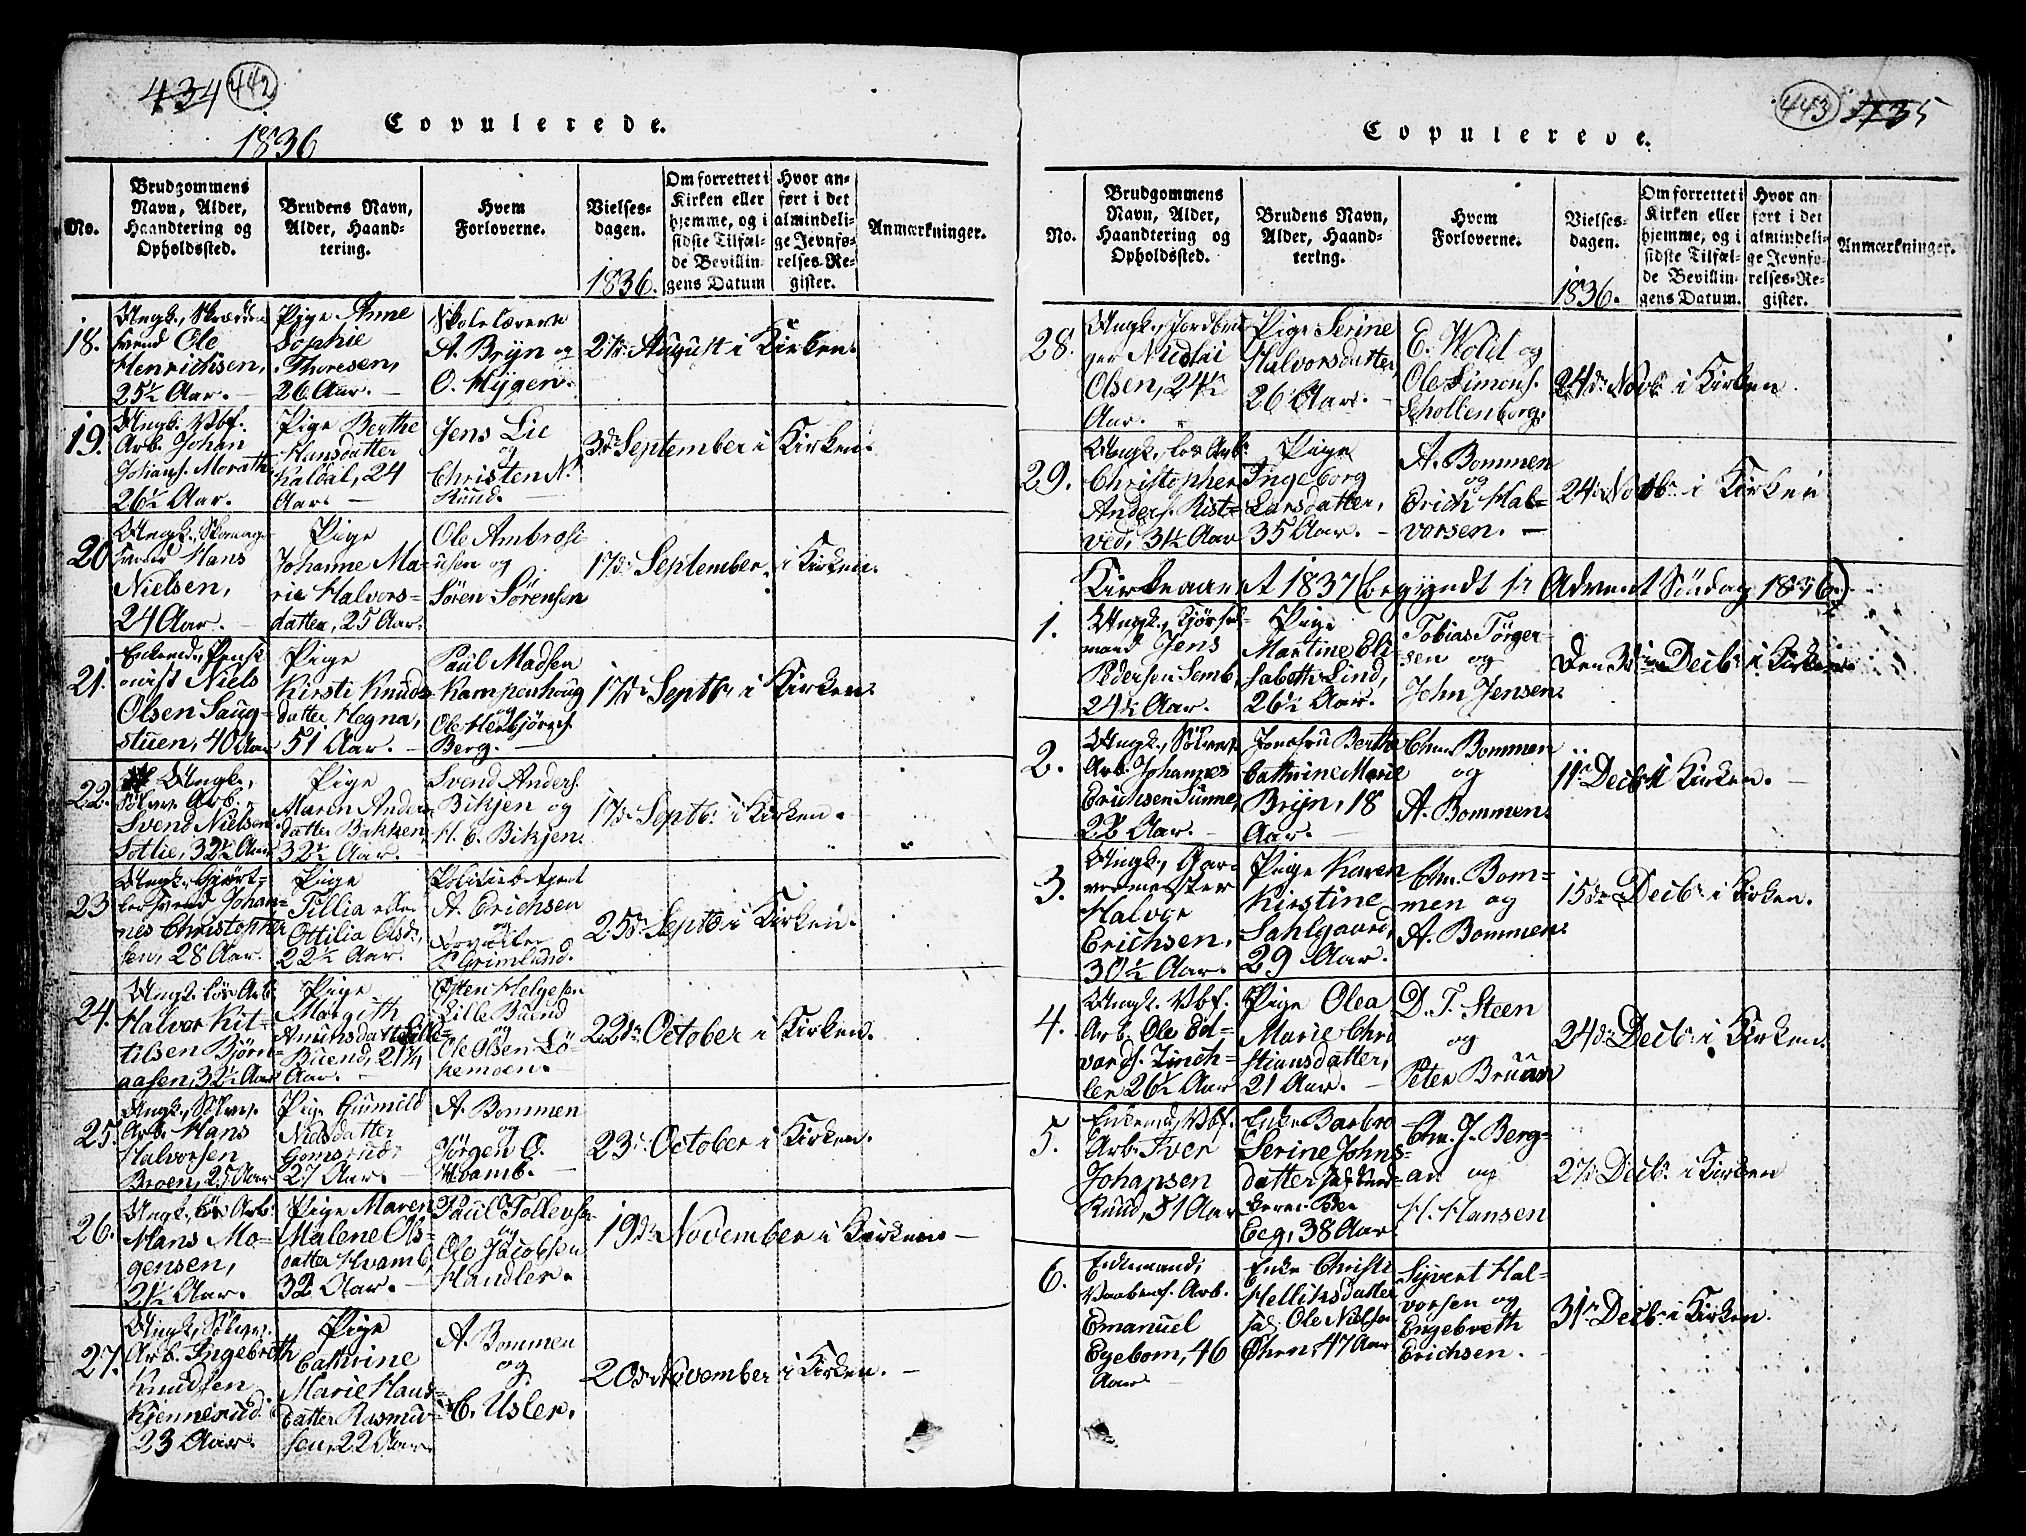 434 442
1836
Copulerede.
No.
Brudgommens
Navn, Alder,
Haandtering og
Opholdssted.
Brudens Navn,
Alder, Haand-
tering.
Hvem
Forloverne.
Vielses-
dagen.
1836.
Om forrettet i
Kirken eller
hjemme, og i
sidste Tilfæl-
de Bevillin-
gens Datum
Hvor an-
ført i det
almindeli-
ge Jevnfø-
relses-Re-
gister.
Anmærkninger.
18.
Ungk., Skrædder
svend Ole
Henrichsen,
25½ Aar. —
Pige Anne
Sophie
Thoresen,
26 Aar. —
Skolelærerne
A. Bryn og
O. Mygen.
21de August i Kirken.
19.
Ungk. Vbf.
Arb. Johan
Johans. Morath
26½ Aar. —
Pige Berthe
Hansdatter
Kaldal, 24
Aar. —
Jens Lie
og
Christen N.
Ruud. —
3de September i Kirken.
20
Ungk., Skomag.
svend Hans
Nielsen,
24 Aar. —
Pige
Johanne Ma-
rie Halvors-
datter, 25 Aar.
Ole Ambrosi
usen og
Søren Sørensen
17de September i Kirken.
21.
Enkemd., Pensi
onist Niels
Olsen Saug-
stuen, 40 Aar
Pige
Kirsti Knuds
datter Hegna,
51 Aar. —
Paul Madsen
Kampenhoug
og
Ole Herbjørns.
Berg. —
17de Septbr i Kirken.
22.
Ungk.,
Sølvv. Arb.
Svend Nielsen
Sottlie, 32½ Aar
Pige
Maren Anders
datter Bikken,
32½ Aar. —
Svend Anders.
Bikjen og
H. C. Bikjen.
17de Septbr i Kirken.
23
Ungk., Gjørt-
ler svend Johan-
nes Christopher
sen, 28 Aar.
Pige
Tillia eller
Ottilia Olsdr,
22½ Aar.
Politiebetjent
A. Erichsen
og
Grimlund.
25de Septbr i Kirken.
24.
Ungk. løs Arb.
Halvor Kit-
tilsen Bjørn-
aasen, 32½ Aar
Pige
Margith
Amunsdatter Lille-
Buend, 21¼
Aar. —
Østen Helgesen
Lille Buend
og
Ole Olsen Lø-
kemoen. —
22de October i Kirken.
25.
Ungk., Sølvv.
Arb. Hans
Halvorsen
Broen, 25 Aar
Pige Gunild
Nielsdatter
Gomsrud
27 Aar. —
A. Bommen
og
Jørgen O.
Hvamb. —
23de October i Kirken.
26.
Ungk., løs Arb.
Hans Mo-
gensen,
21½ Aar.
Pige Maren
Malene Ols-
datter Hvamb,
32 Aar. —
Paul Tollevsen
og
Ole Jacobsen
Handler.
19de November i Kirken —
27.
Ungk., Sølvv.
Arb. Ingebreth
Knudsen
Kjennerud
23 Aar.
Pige
Cathrine
Marie Hans-
datter Rasmu-
sen, 22 Aar.
A. Bommen
og
C. Usler.
20de November i Kirken. —
443 435
Copulerede.
No.
Brudgommens
Navn, Alder,
Haandtering og
Opholdssted.
Brudens Navn,
Alder, Haand-
tering.
Hvem
Forloverne.
Vielses-
dagen.
1836.
Om forrettet i
Kirken eller
hjemme, og i
sidste Tilfæl-
de Bevillin-
gens Datum.
Hvor an-
ført i det
almindeli-
ge Jevnfø-
relses-Re-
gister.
Anmærkninger.
28.
Ungk., Jordbru
ger Nicolai
Olsen, 24½
Aar. —
Pige Serine
Halvorsdatter,
26 Aar. —
E. Wold og
Ole Simons.
Schollenborg.
24de Novbr i Kirken.
29.
Ungk., løs Arb.
Christopher
Anders. Rist-
ved, 31½ Aar
Pige
Ingeborg
Larsdatter,
35 Aar. —
A. Bommen
og
Erich Hal-
vorsen. —
24de Novbr i Kirken
Kirkeaaret 1837 (begyndt 1ste Advent Søndag 1836.)
1.
Ungk., Kjørsels-
mand Jens
Pedersen Semb,
24½ Aar.
Pige
Martine Eli
sabeth Lind,
26½ Aar.
Tobias Tørger-
sen og
John Jensen.
Den 3die Decbr i Kirken.
2.
Ungk., Sølvv.
Arb. Johannes
Erichsen Sunne,
22 Aar. —
Jomfru Berthe
Cathrine Marie
Bryn, 18
Aar. —
Chr. Bommen
og
A. Bommen.
11te Decbr i Kirken. —
3.
Ungk., Gar-
vermester
Halvor
Erichsen,
30½ Aar.
Pige Karen
Kirstine
Sahlgaard,
29 Aar.
Chr. Bom-
men og
A. Bommen.
15de Decbr i Kirken.
4.
Ungk. Vbf.
Arb. Ole Ed-
vards. Zinch-
ler 26½ Aar
Pige Olea
Marie Chri
stiansdatter,
21 Aar. —
D. T. Steen
og
Peter Bruun
24de Decbr i Kirken.
5.
Enkemd, Vbf.
Arb. Iver
Johansen
Ruud, 51 Aar
Enke Barbro
Serine Johns-
datter
Eeg, 38 Aar.
Chr. J. Berg-
an og
H. Hansen
27de Decbr i Kirken
6.
Enkemand,
Vaabenf. Arb.
Emanuel
Egebom, 46
Aar
Enke Christi
Helliksdatter
sad: Ole Nielsen
Øhren, 47 Aar
Syvert Hal-
vorsen og
Engebreth
Erichsen. —
31te Decbr i Kirken.